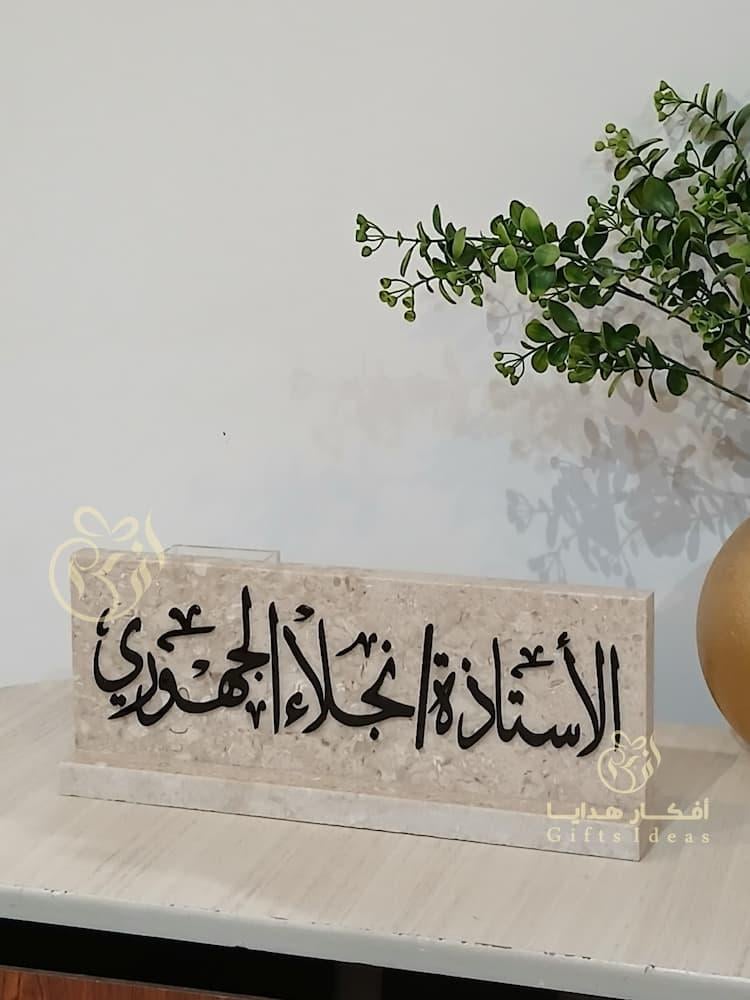 الأستاذة / نجلاء الجهوري
أفكار هدايا
Gifts Ideas